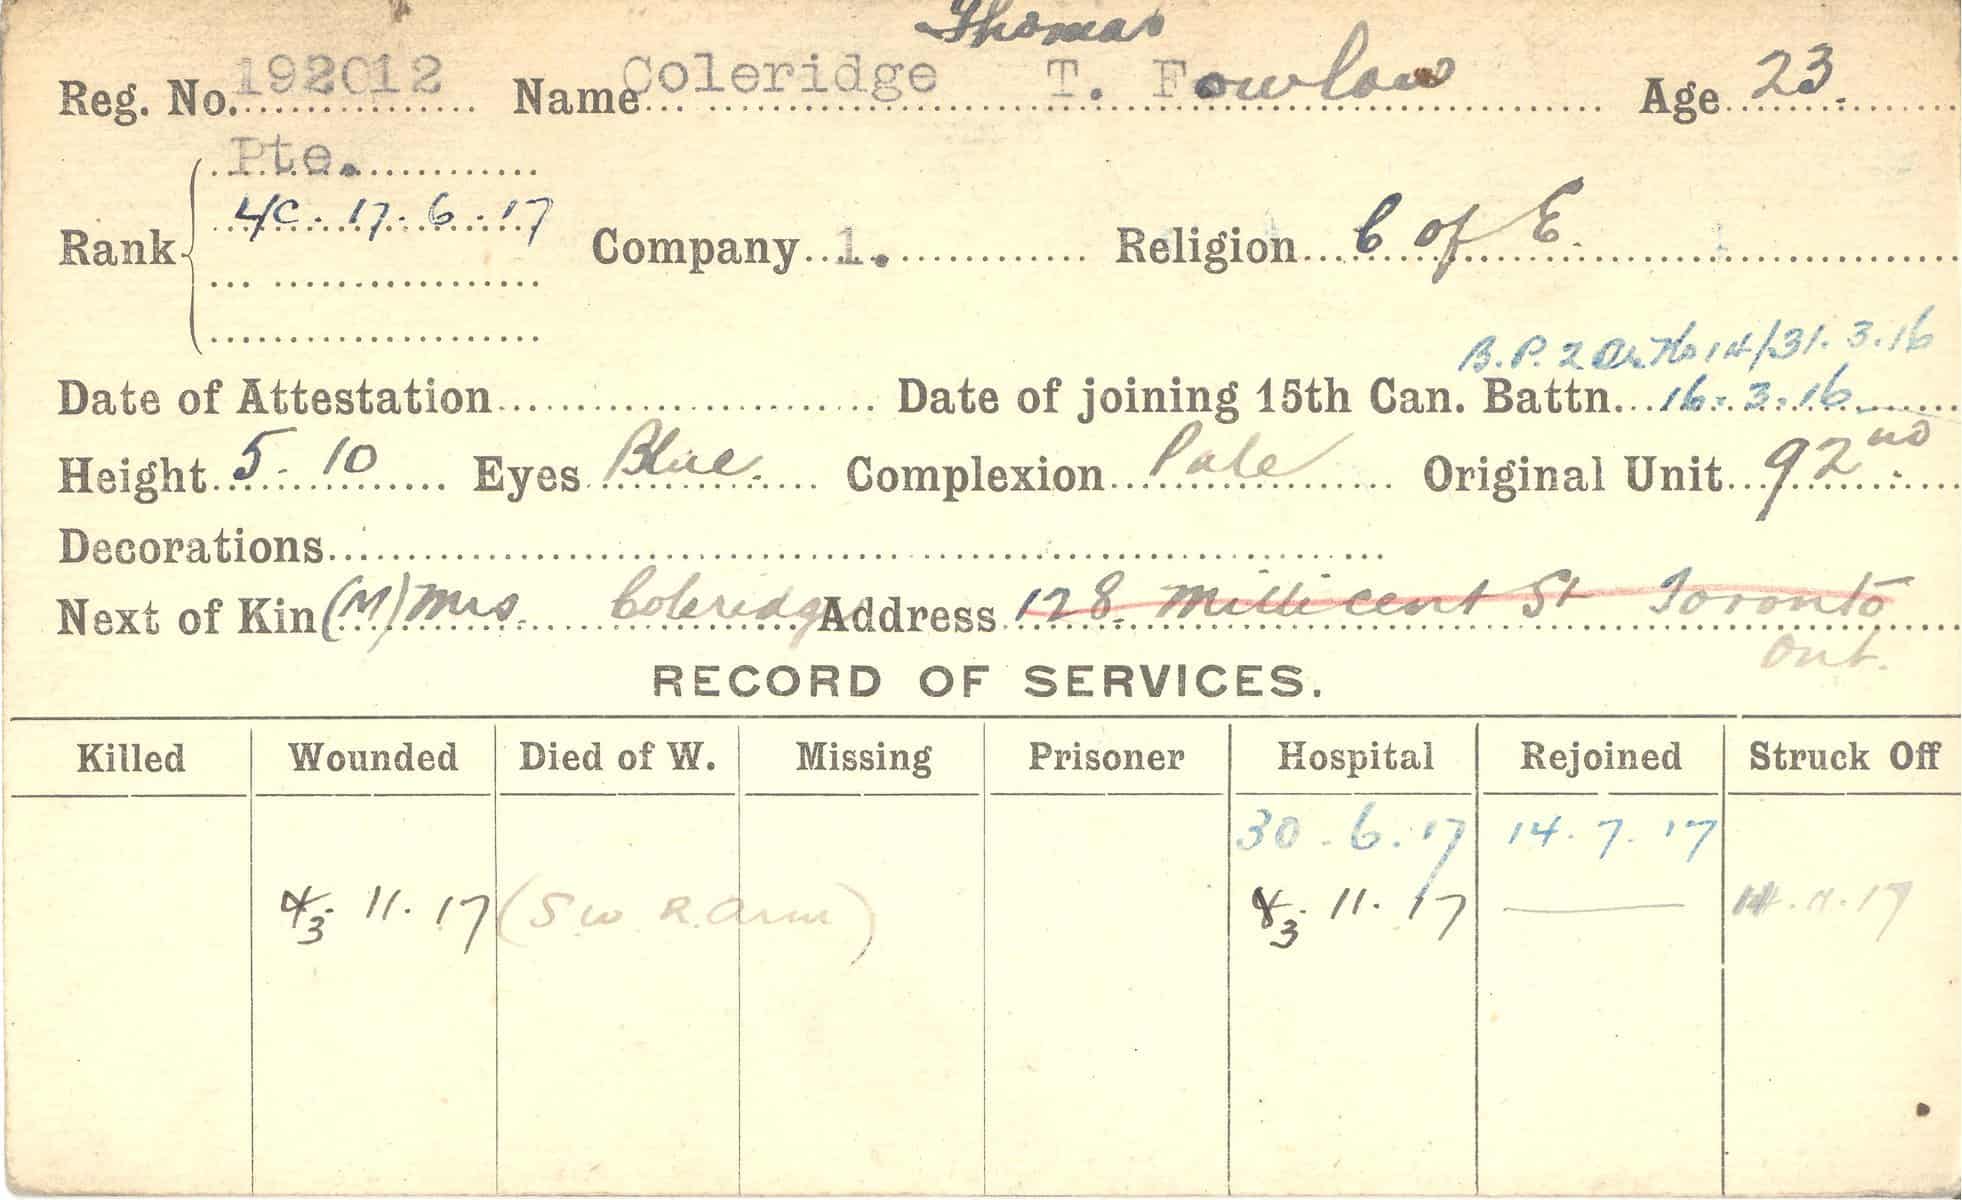 Thomas
Reg. No. 192012 Name Coleridge T. Fowlow Age 23.
Pte.
Rank L/C. 17.6.17 Company 1. Religion C of E.
B.P. 2 14/31.3.16
Date of Attestation Date of joining 15th Can. Battn. 16.3.16
Height 5.10 Eyes Blue. Complexion Pale Original Unit 92nd
Decorations
Next of Kin (M) Mrs. Coleridge Address 128 Millicent St Toronto
Ont.
RECORD OF SERVICES.
Killed Wounded Died of W. Missing Prisoner Hospital Rejoined Struck Off
30.6.17 14.7.17
11.17 (S.W. R. Arm) 11.17 —